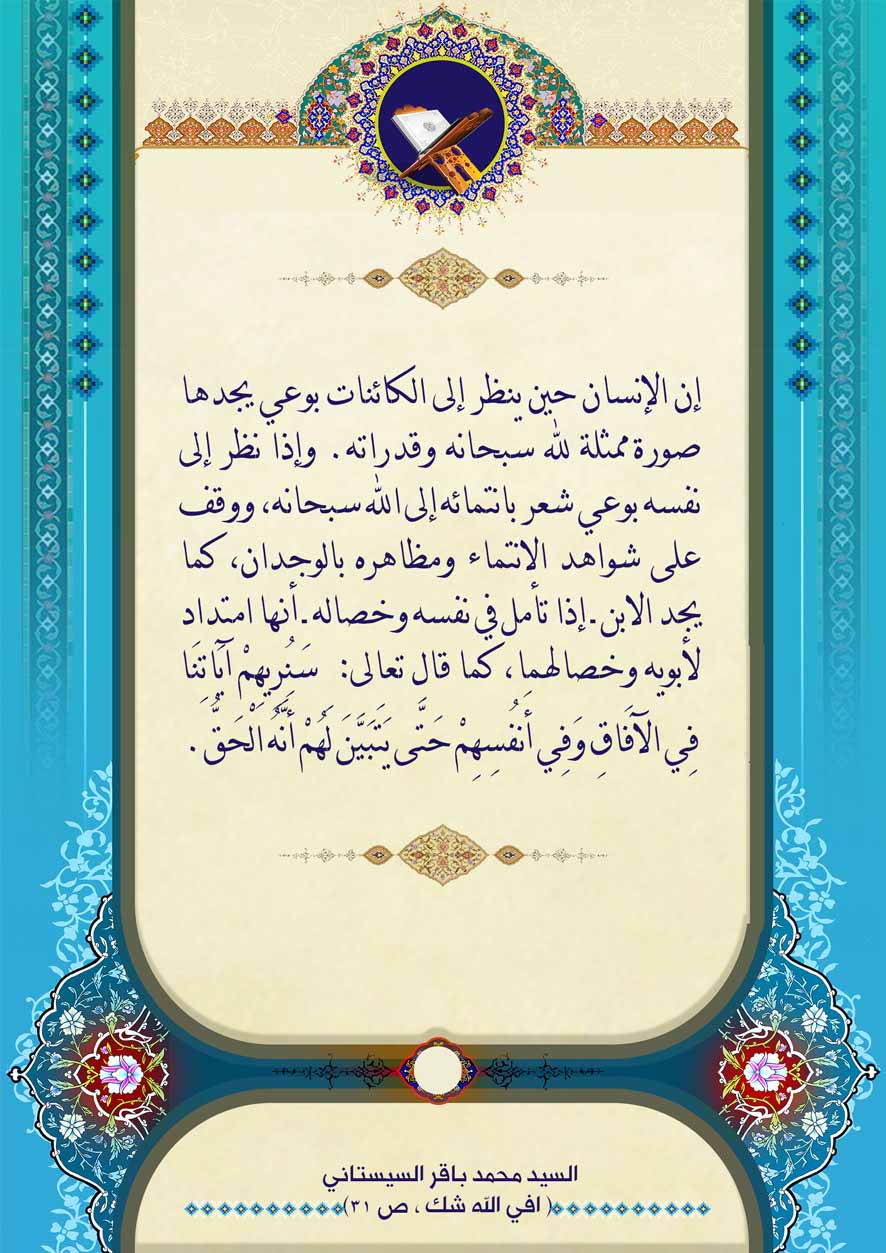 إن الإنسان حين ينظر إلى الكائنات بوعي يجدها
صورة ممثلة لله سبحانه وقدراته. وإذا نظر إلى
نفسه بوعي شعر بانتمائه إلى الله سبحانه، ووقف
على شواهد الانتماء ومظاهره بالوجدان، كما
يجد الابن ـ إذا تأمل في نفسه وخصاله ـ أنها امتداد
لأبويه وخصالهما، كما قال تعالى: سَنُرِيهِمْ آيَاتِنَا
فِي الْآفَاقِ وَفِي أَنفُسِهِمْ حَتَّى يَتَبَيَّنَ لَهُمْ أَنَّهُ الْحَقُّ.
السيد محمد باقر السيستاني
( افي الله شك ، ص ٣١)